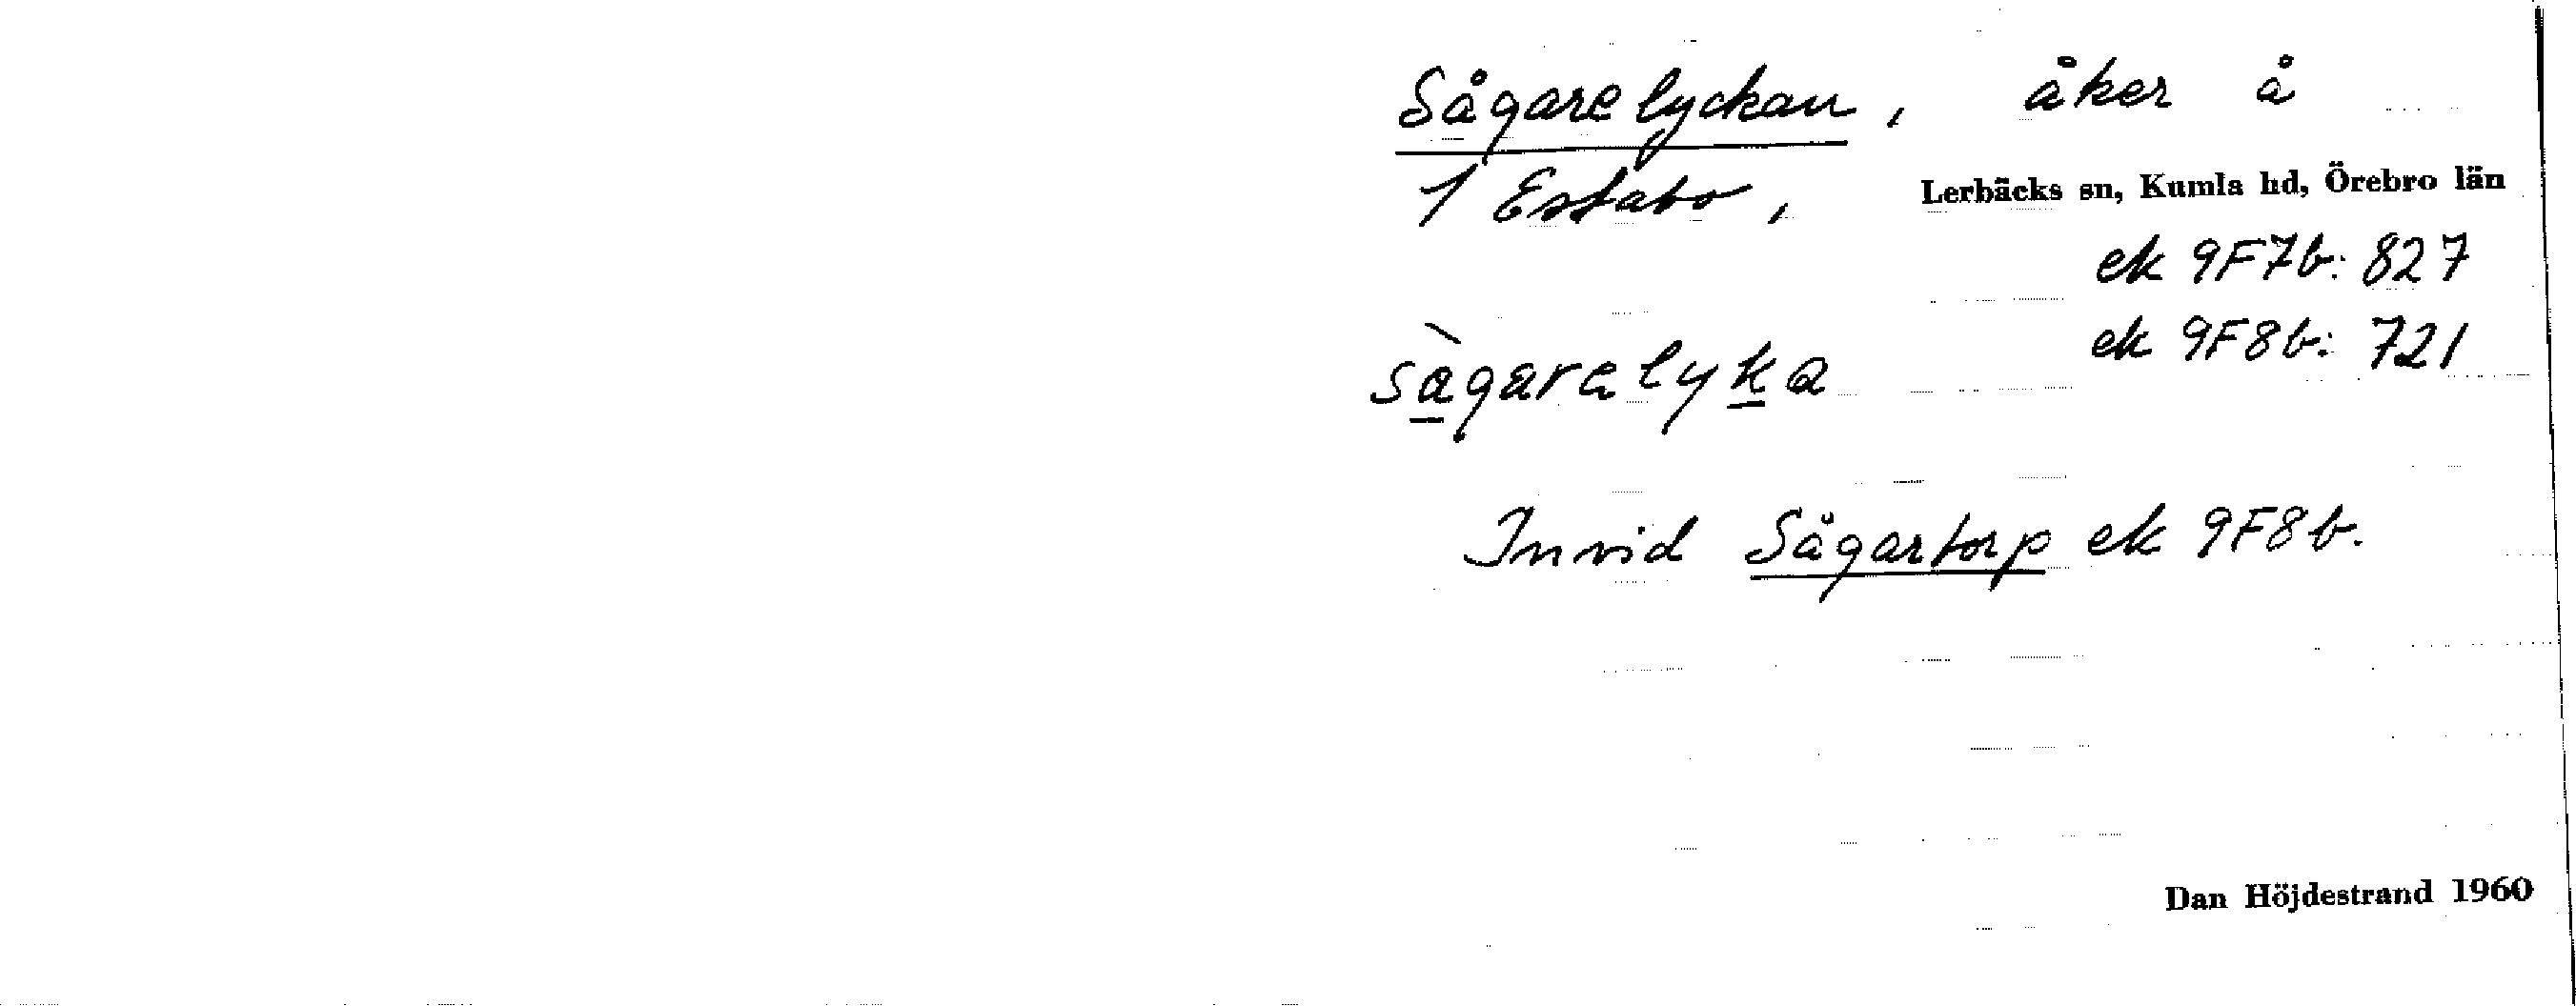 Sågarelyckan, åker å
1 Estabo, Lerbäcks sn, Kumla hd, Örebro län
ek 9F7b: 827
ek 9F8b: 721
sàgaralyka
Invid Sågartorp ek 9F8b.
Dan Höjdestrand 1960